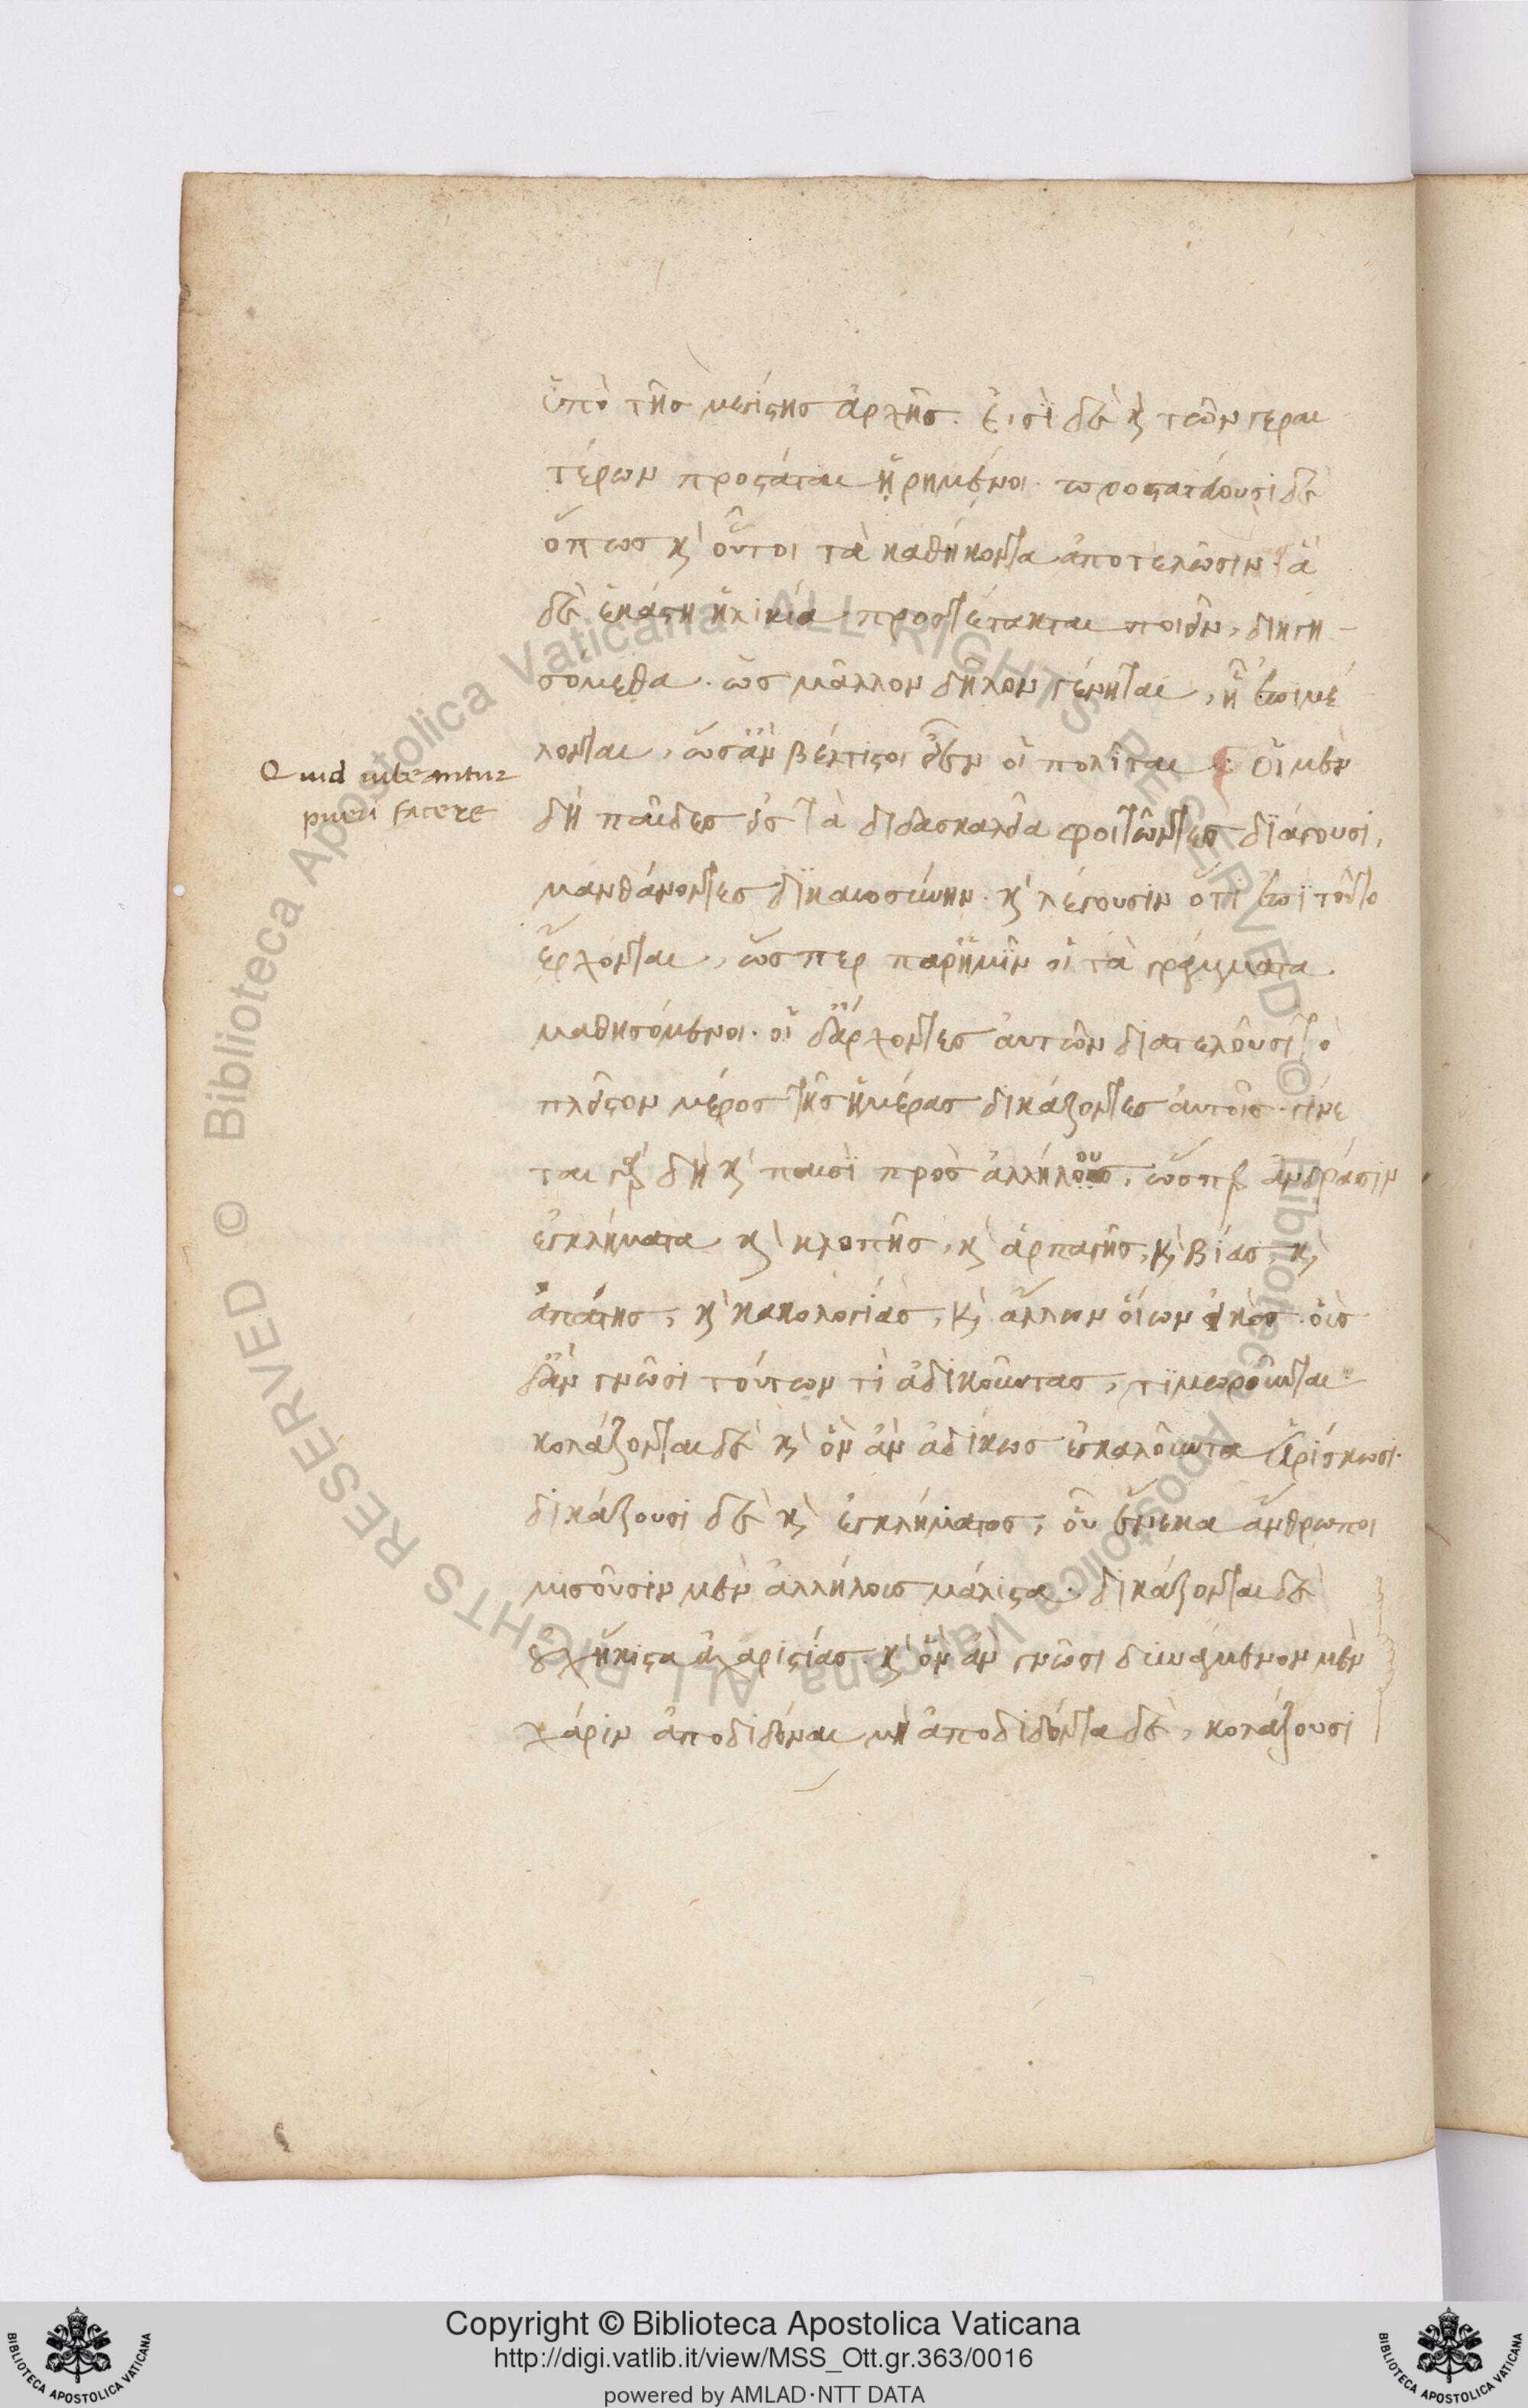 ὑπὸ τῆς μεγίστης ἀρχῆς. εἰσὶ δὲ κ̀ τῶν γεραι
τέρων προστάται ᾑρημένοι. προστατεύουσι δὲ
ὅπως κ̀ οὗτοι τὰ καθήκοντα ἀποτελῶσιν. ἃ
δὲ ἑκάστη ἡλικία προστέτακται ποιεῖν, διηγη-
σόμεθα. ὡς μᾶλλον δῆλον γένηται, ᾗ ἐπιμέ
λονται, ὡς ἂν βέλτιστοι εἶεν οἱ πολῖται. Οἱ μὲν
Quid iubeantur
pueri facere
δὴ παῖδες εἰς τὰ διδασκαλεῖα φοιτῶντες διάγουσι,
μανθάνοντες δικαιοσύνην. κ̀ λέγουσιν ὅτι ἐπὶ τοῦτο
ἔρχονται, ὥσπερ παρ' ἡμῖν οἱ τὰ γράμματα
μαθησόμενοι. οἱ δ' ἄρχοντες αὐτῶν διατελοῦσι τὸ
πλεῖστον μέρος τῆς ἡμέρας δικάζοντες αὐτοῖς. γίνε
ται γὰρ δὴ κ̀ παισὶ πρὸς ἀλλήλους, ὥσπερ ἀνδράσιν
ἐγκλήματα κ̀ κλοπῆς, κ̀ ἁρπαγῆς, κ̀ βίας, κ̀
ἀπάτης, κ̀ κακολογίας, κ̀ ἄλλων οἵων εἰκός. οὓς
δ' ἂν γνῶσι τούτων τὶ ἀδικοῦντας, τιμωροῦνται
κολάζονται δὲ κ̀ ὃν ἂν ἀδίκως ἐγκαλοῦντα εὑρίσκωσι.
δικάζουσι δὲ κ̀ ἐγκλήματος, οὗ ἕνεκα ἄνθρωποι
μισοῦσιν μὲν ἀλλήλους μάλιστα. δικάζονται δὲ
οὐχ ἥκιστα ἀχαριστίας. κ̀ ὃν ἂν γνῶσι δυνάμενον μὲν
χάριν ἀποδιδόναι μὴ ἀποδιδόντα δὲ, κολάζουσι
Copyright © Biblioteca Apostolica Vaticana
http://digi.vatlib.it/view/MSS_Ott.gr.363/0016
powered by AMLAD·NTT DATA